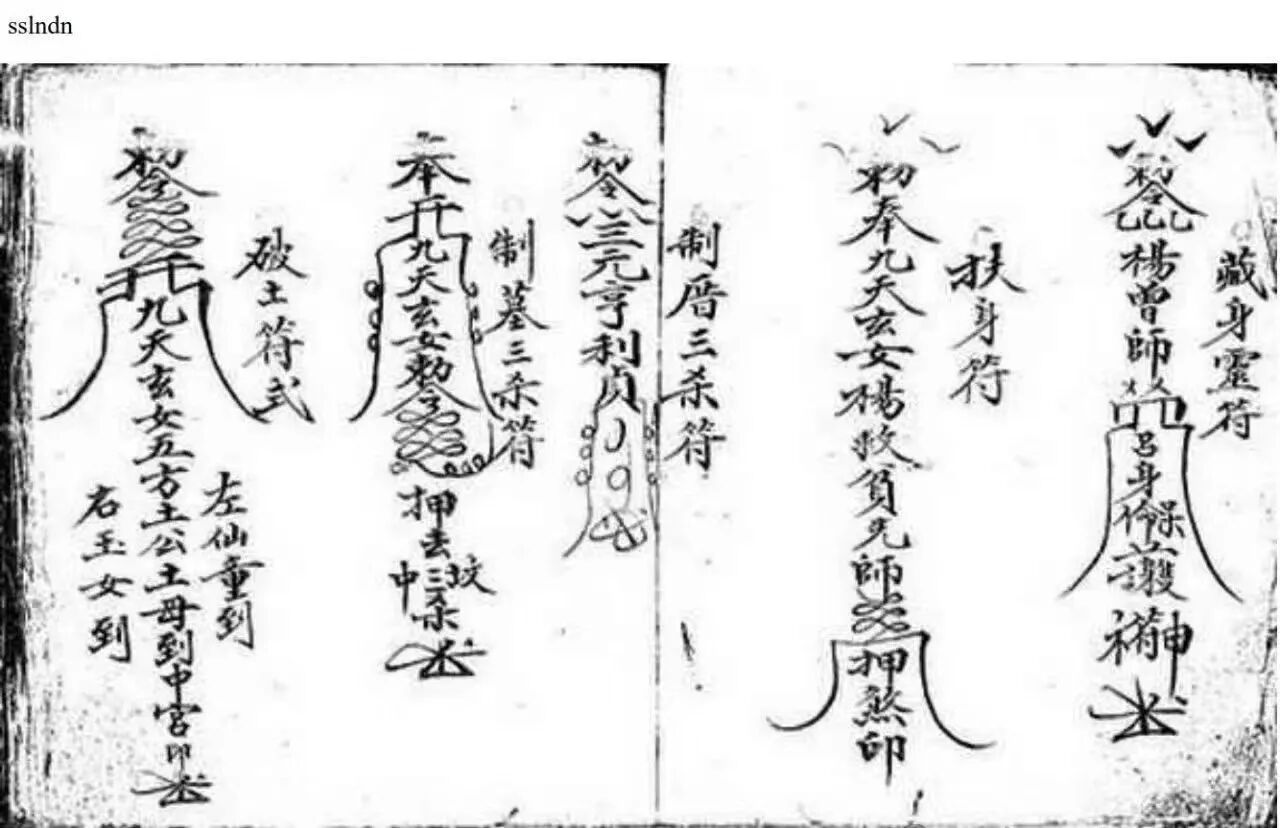 sslndn
藏身靈符
勅令
楊曾師
身
保護
扶身符
勅奉九天玄女楊救貧先師
押煞印
制厝三杀符
勅令三元亨利貞
制墓三杀符
奉
九天玄女勅令
押去三杀
中
破土符式
勅令
九天玄女五方土公土母到中宮印
左仙童到
右玉女到